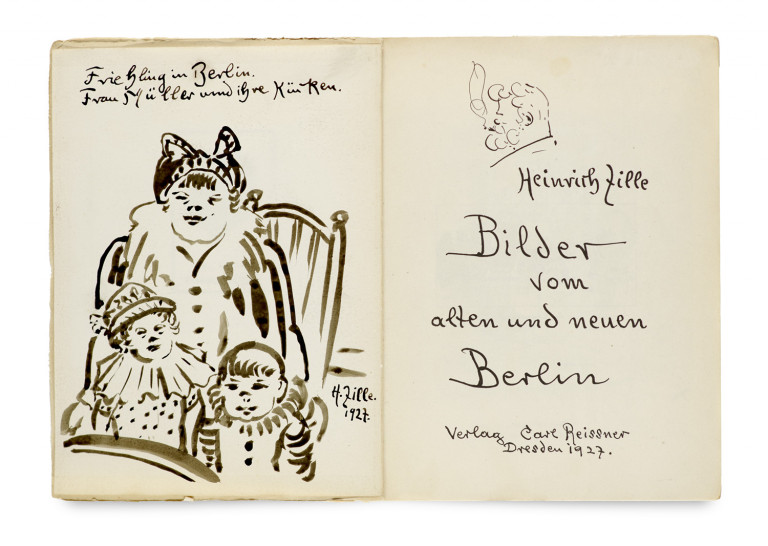 Friehling in Berlin.
Frau Müller und ihre Küüken.
H. Zille.
1927.
Heinrich Zille
Bilder
vom
alten und neuen
Berlin
Verlag Carl Reissner
Dresden 1927.